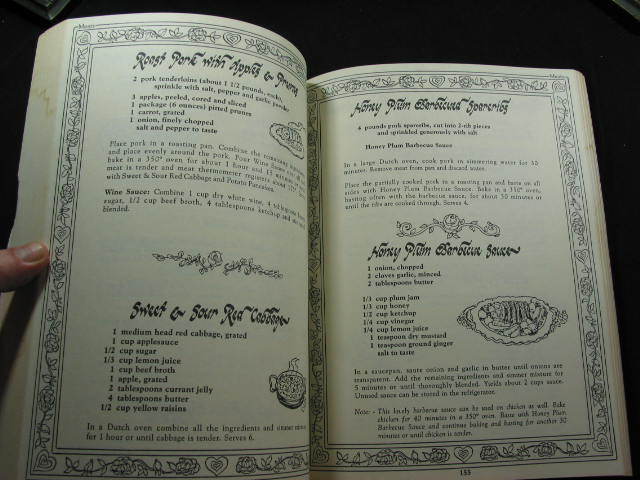 Meats
Roast Pork with Apples & Prunes
2 pork tenderloins (about 1 1/2 pounds, each)
sprinkle with salt, pepper and garlic powder
3 apples, peeled, cored and sliced
1 package (6 ounces) pitted prunes
1 carrot, grated
1 onion, finely chopped
salt and pepper to taste
Place pork in a roasting pan. Combine the remaining
and place evenly around the pork. Pour Wine Sauce
bake in a 350° oven for about 1 hour and 15
meat is tender and meat thermometer registers about 175°
with Sweet & Sour Red Cabbage and Potato Pancakes.
Wine Sauce: Combine 1 cup dry white wine, 4 tablespoons
sugar, 1/2 cup beef broth, 4 tablespoons ketchup
blended.
Sweet & Sour Red Cabbage
1 medium head red cabbage, grated
1 cup applesauce
1/2 cup sugar
1/3 cup lemon juice
1 cup beef broth
1 apple, grated
2 tablespoons currant jelly
4 tablespoons butter
1/2 cup yellow raisins
In a Dutch oven combine all the ingredients and simmer mixture
for 1 hour or until cabbage is tender. Serves 6.
Meats
Honey Plum Barbecued Spareribs
4 pounds pork spareribs, cut into 2-rib pieces
and sprinkled generously with salt
Honey Plum Barbecue Sauce
In a large Dutch oven, cook pork in simmering water for 30
minutes. Remove meat from pan and discard water.
Place the partially cooked pork in a roasting pan and baste on all
sides with Honey Plum Barbecue Sauce. Bake in a 350° oven,
basting often with the barbecue sauce, for about 30 minutes or
until the ribs are cooked through. Serves 4.
Honey Plum Barbecue Sauce
1 onion, chopped
2 cloves garlic, minced
2 tablespoons butter
1/3 cup plum jam
1/3 cup honey
1/2 cup ketchup
1/4 cup vinegar
1/4 cup lemon juice
1 teaspoon dry mustard
1 teaspoon ground ginger
salt to taste
In a saucepan, saute onion and garlic in butter until onions are
transparent. Add the remaining ingredients and simmer mixture for
5 minutes or until thoroughly blended. Yields about 2 cups sauce.
Unused sauce can be stored in the refrigerator.
Note: - This lovely barbecue sauce can be used on chicken as well. Bake
chicken for 40 minutes in a 350° oven. Baste with Honey Plum
Barbecue Sauce and continue baking and basting for another 30
minutes or until chicken is tender.
155